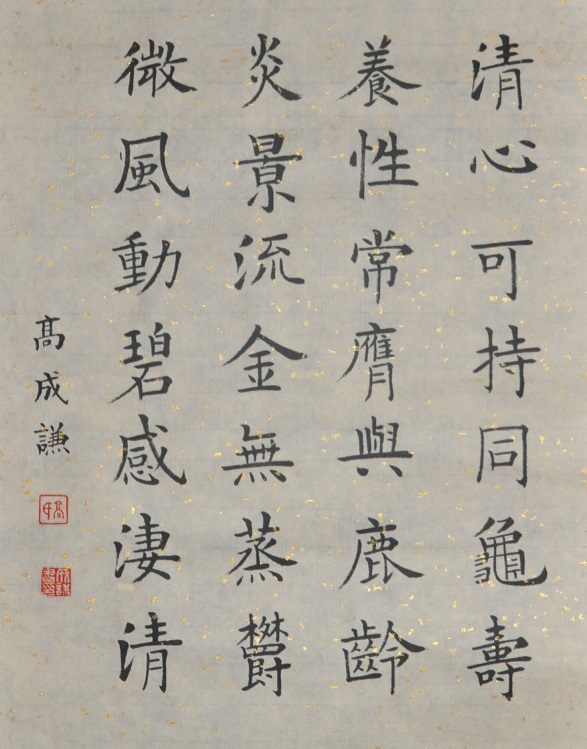 清心可持同龜壽
養性常膺與鹿齡
炎景流金無蒸鬱
微風動碧感淒清
高成謙